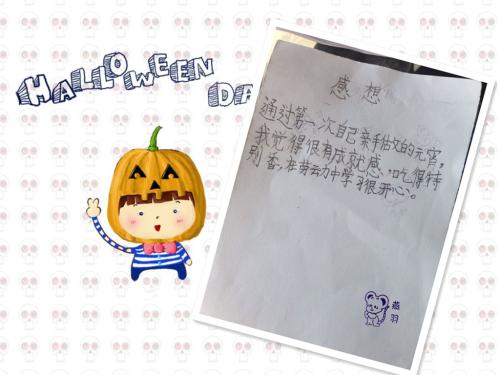 HALLOWEEN
DA
感想
通过第一次自己亲手做的元宵,
我觉得很有成就感,吃得特
别香,在劳动中学习很开心。
燕羽